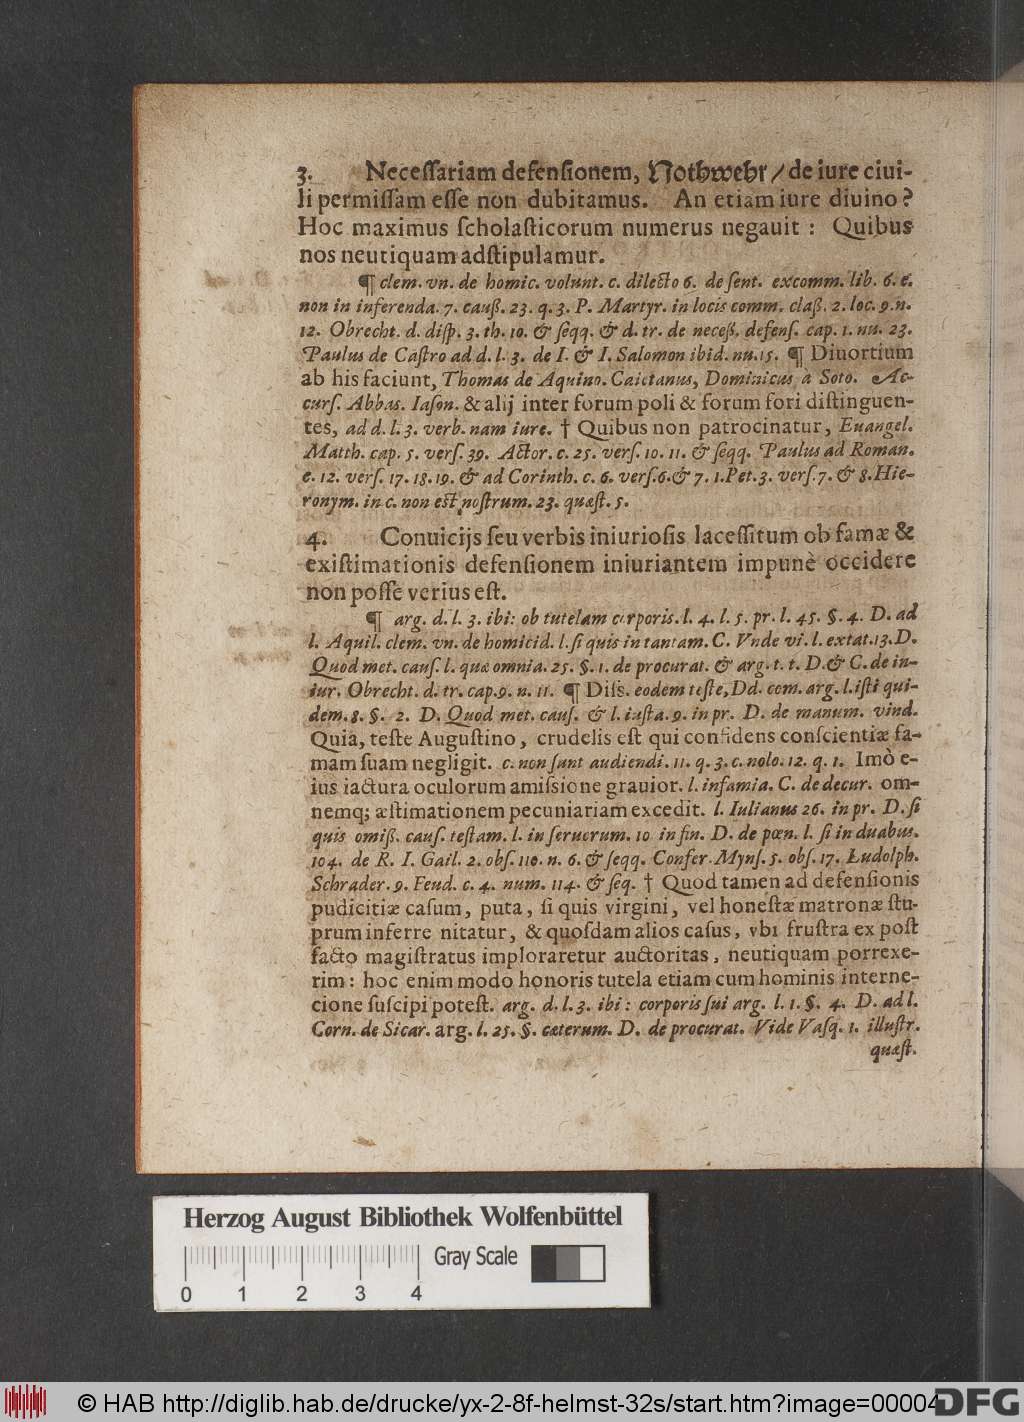 3. Neceſſariam defenſionem, Nothwehr / de iure ciui-
li permiſſam eſſe non dubitamus. An etiam iure diuino?
Hoc maximus ſcholaſticorum numerus negauit : Quibus
nos neutiquam adſtipulamur.
¶ clem. vn. de homic. volunt. c. dilecto 6. de ſent. excomm. lib. 6. c.
non in inferenda. 7. cauß. 23. q. 3. P. Martyr. in locis comm. claß. 2. loc. 9. n.
12. Obrecht. d. diſp. 3. th. 10. & ſeqq. & d. tr. de neceß. defenſ. cap. 1. nu. 23.
Paulus de Caſtro ad d. l. 3. de I. & I. Salomon ibid. nu. 15. ¶ Diuortium
ab his faciunt, Thomas de Aquino. Caietanus, Dominicus a Soto. Ac-
curſ. Abbas. Iaſon. & alij inter forum poli & forum fori diſtinguen-
tes, ad d. l. 3. verb. nam iure. † Quibus non patrocinatur, Euangel.
Matth. cap. 5. verſ. 39. Actor. c. 25. verſ. 10. 11. & ſeqq. Paulus ad Roman.
c. 12. verſ. 17. 18. 19. & ad Corinth. c. 6. verſ. 6. & 7. 1. Pet. 3. verſ. 7. & 8. Hie-
ronym. in c. non est nostrum. 23. quæſt. 5.
4. Conuicijs ſeu verbis iniurioſis laceſſitum ob famæ &
exiſtimationis defenſionem iniuriantem impunè occidere
non poſſe verius eſt.
¶ arg. d. l. 3. ibi: ob tutelam corporis. l. 4. l. 5. pr. l. 45. §. 4. D. ad
l. Aquil. clem. vn. de homicid. l. ſi quis in tantam. C. Vnde vi. l. extat. 13. D.
Quod met. cauſ. l. quæ omnia. 25. §. 1. de procurat. & arg. t. t. D. & C. de in-
iur. Obrecht. d. tr. cap. 9. n. 11. ¶ Diſſ. eodem teſte, Dd. com. arg. l. iſti qui-
dem. 8. §. 2. D. Quod met. cauſ. & l. iuſta. 9. in pr. D. de manum. vind.
Quia, teſte Auguſtino, crudelis eſt qui confidens conſcientiæ fa-
mam ſuam negligit. c. non ſunt audiendi. 11. q. 3. c. nolo. 12. q. 1. Imò e-
ius iactura oculorum amiſsione grauior. l. infamia. C. de decur. om-
nemq; æſtimationem pecuniariam excedit. l. Iulianus 26. in pr. D. ſi
quis omiß. cauſ. teſtam. l. in ſeruorum. 10 in fin. D. de pœn. l. ſi in duabus.
104. de R. I. Gail. 2. obſ. 110. n. 6. & ſeqq. Confer. Mynſ. 5. obſ. 17. Ludolph.
Schrader. 9. Feud. c. 4. num. 114. & ſeq. † Quod tamen ad defenſionis
pudicitiæ caſum, puta, ſi quis virgini, vel honeſtæ matronæ ſtu-
prum inferre nitatur, & quoſdam alios caſus, vbi fruſtra ex poſt
facto magiſtratus imploraretur auctoritas, neutiquam porrexe-
rim : hoc enim modo honoris tutela etiam cum hominis interne-
cione ſuſcipi poteſt. arg. d. l. 3. ibi : corporis ſui arg. l. 1. §. 4. D. ad l.
Corn. de Sicar. arg. l. 25. §. cæterum. D. de procurat. Vide Vaſq. 1. illuſtr.
quæſt.
Herzog August Bibliothek Wolfenbüttel
Gray Scale
0 1 2 3 4
© HAB http://diglib.hab.de/drucke/yx-2-8f-helmst-32s/start.htm?image=00004
DFG